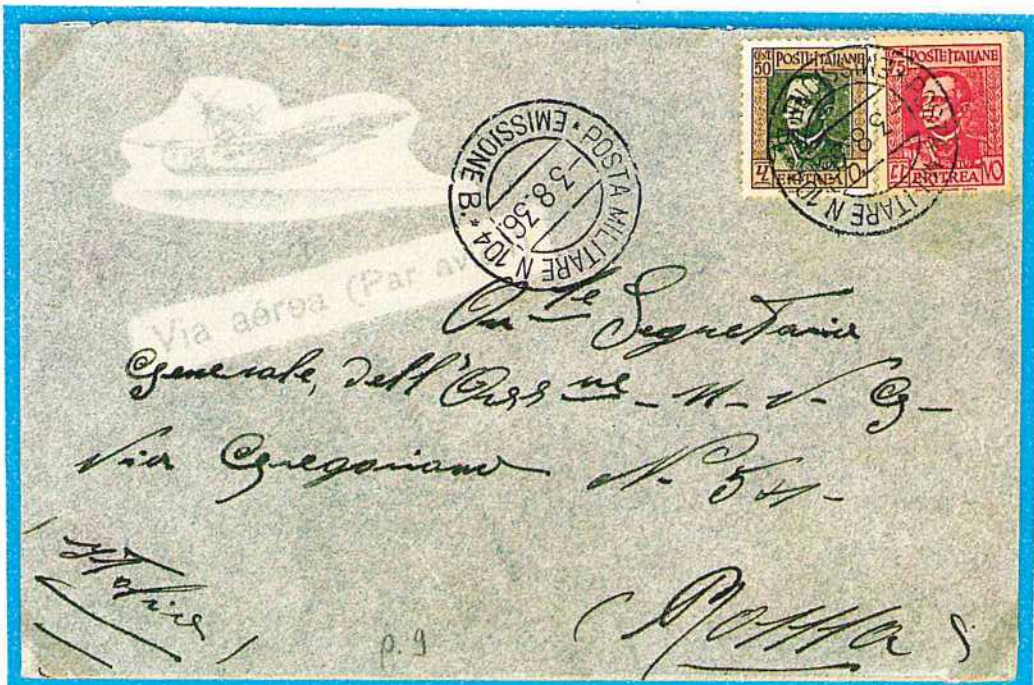 CENT 50 POSTE ITALIANE
ERITREA
75 POSTE ITALIANE
ERITREA
POSTA MILITARE N 104 * EMISSIONE B. *
3.8.36
Via aérea (Par av
On.le Segretario
Generale, dell'Ass.ne - M - V - G -
Via Gregoriana N. 54 -
(Roma)
Italia
p. 9